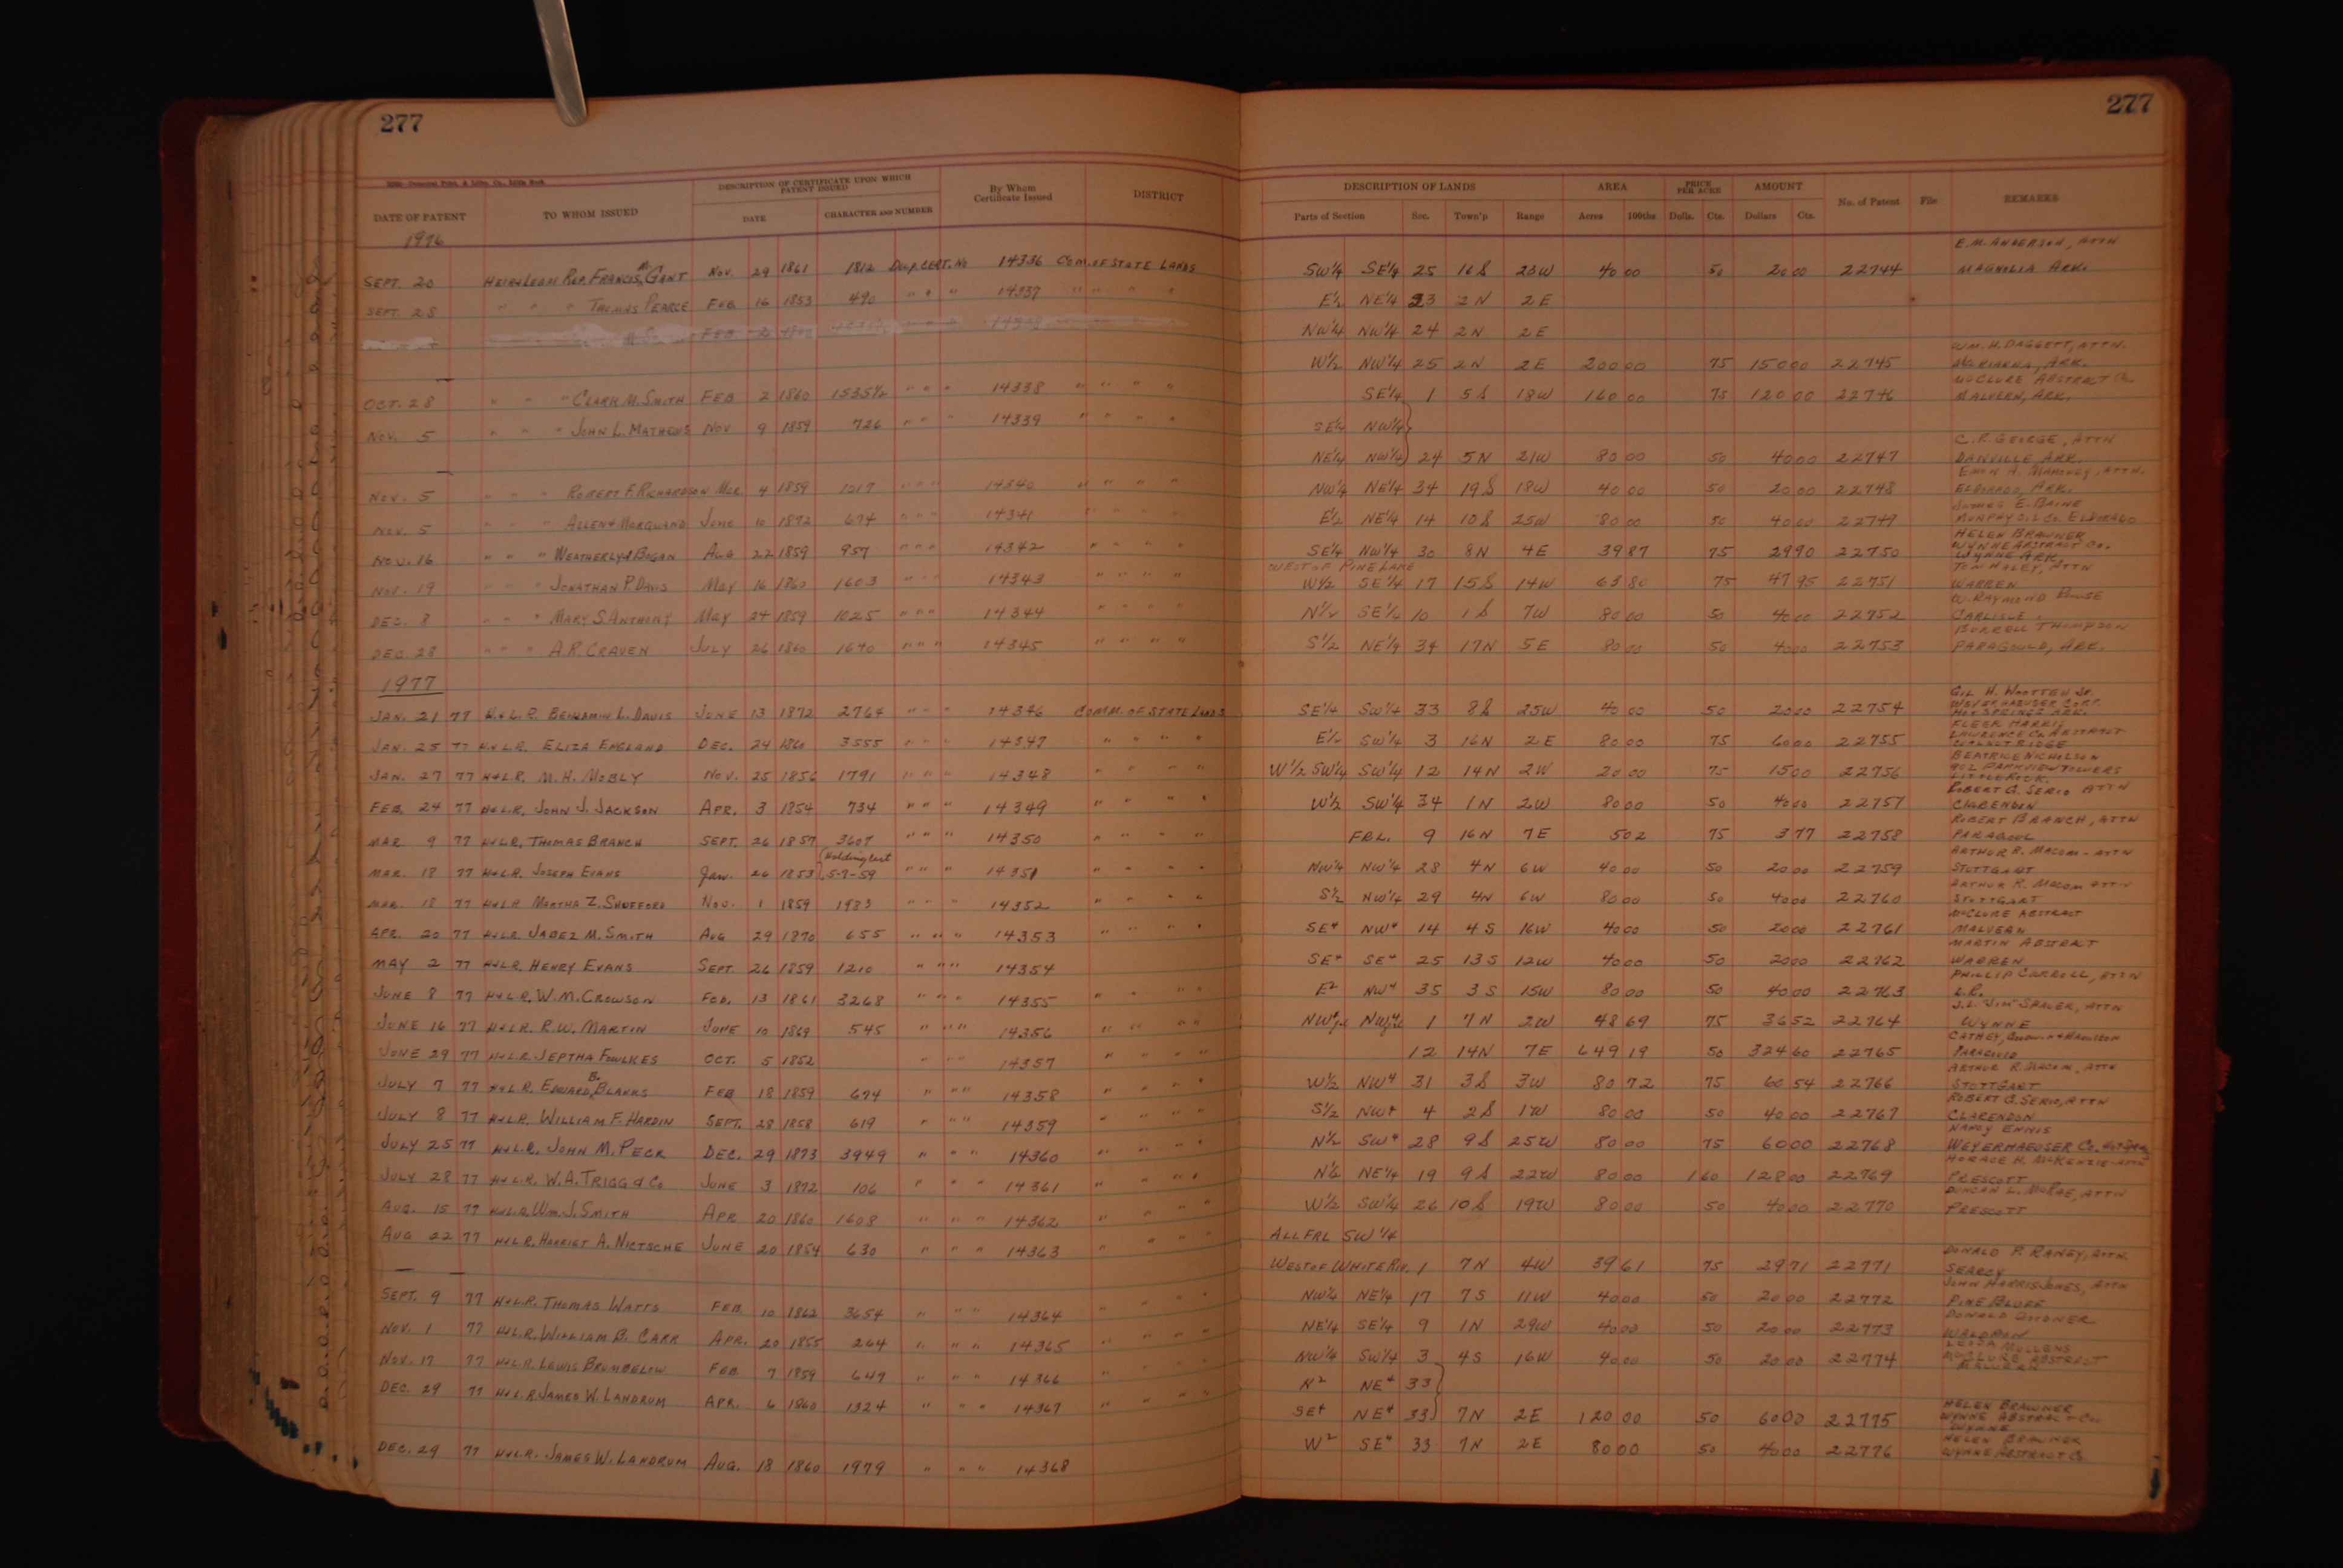 277
277
DATE OF PATENT TO WHOM ISSUED DESCRIPTION OF CERTIFICATE UPON WHICH PATENT ISSUED DATE CHARACTER AND NUMBER By Whom Certificate Issued DISTRICT DESCRIPTION OF LANDS Parts of Section Sec. Town'p Range AREA Acres 100ths PRICE PER ACRE Dolls. Cts. AMOUNT Dollars Cts. No. of Patent File REMARKS
1976
E. M. ANDERSON, ATTN
SEPT. 20 HEIRS & LEGAL REP. FRANCIS M. GANT NOV. 29 1861 1812 DUP. CERT. NO 14336 COM. OF STATE LANDS SW¼ SE¼ 25 16 S 23W 40 00 50 20 00 22744 MAGNOLIA ARK.
SEPT. 28 " " " THOMAS PEARCE FEB 16 1853 490 " " " 14337 " " " " E½ NE¼ 23 2 N 2 E
NW¼ NW¼ 24 2 N 2 E
WM. H. DAGGETT, ATTN.
W½ NW¼ 25 2 N 2 E 200 00 75 150 00 22745 MARIANNA, ARK.
MCCLURE ABSTRACT CO.
OCT. 28 " " " CLARK M. SMITH FEB 2 1860 1535½ " " " 14338 " " " " SE¼ 1 5 S 18W 160 00 75 120 00 22746 MALVERN, ARK.
NOV. 5 " " " JOHN L. MATHEWS NOV 9 1859 726 " " " 14339 " " " " SE¼ NW¼
C. R. GEORGE, ATTN
NE¼ NW¼ 24 5N 21W 80 00 50 40 00 22747 DANVILLE ARK.
EMON A. MAHONEY, ATTN.
NOV. 5 " " " ROBERT F. RICHARDSON MAR. 4 1859 1017 " " " 14340 " " " " NW¼ NE¼ 34 19 S 18W 40 00 50 20 00 22748 ELDORADO, ARK.
JAMES E. BAINE
NOV. 5 " " " ALLEN & MORQUAND JUNE 10 1872 674 " " " 14341 " " " " E½ NE¼ 14 10 S 25W 80 00 50 40 00 22749 MURPHY OIL CO. ELDORADO
HELEN BRAWNER
WYNNE ABSTRACT CO.
NOV. 16 " " " WEATHERLY & BOGAN AUG 22 1859 957 " " " 14342 " " " " SE¼ NW¼ 30 8N 4E 39 87 75 29 90 22750 WYNNE ARK.
WEST OF PINE LAKE TOM HALEY, ATTN
NOV. 19 " " " JONATHAN P. DAVIS MAY 16 1860 1603 " " " 14343 " " " " W½ SE¼ 17 15 S 14W 63 80 75 47 95 22751 WARREN
W. RAYMOND HOUSE
DEC. 8 " " " MARY S. ANTHONY MAY 24 1859 1025 " " " 14344 " " " " N½ SE¼ 10 1 S 7W 80 00 50 40 00 22752 CARLISLE.
BURRELL THOMPSON
DEC 28 " " " A. R. CRAVEN JULY 26 1860 1640 " " " 14345 " " " " S½ NE¼ 34 17N 5 E 80 00 50 40 00 22753 PARAGOULD, ARK.
1977
GIL H. WOOTTEN JR.
WEYERHAEUSER CORP.
JAN. 21 77 H & L. R. BENJAMIN L. DAVIS JUNE 13 1872 2764 " " " 14346 COMM. OF STATE LANDS SE¼ SW¼ 33 8 S 25W 40 00 50 20 00 22754 HOT SPRINGS ARK.
LAWRENCE CO ABSTRACT
JAN. 25 77 H & L.R. ELIZA ENGLAND DEC. 24 1860 3555 " " " 14347 " " " " E½ SW¼ 3 16N 2 E 80 00 75 60 00 22755 WALNUT RIDGE
BEATRICE NICHOLSON
902 PARKVIEW TOWERS
JAN. 27 77 H & L.R. M. H. MOBLY NOV. 25 1856 1791 " " " 14348 " " " " W½ SW¼ SW¼ 12 14N 2W 20 00 75 15 00 22756 LITTLE ROCK.
ROBERT G. SERIO ATTN
FEB. 24 77 H & L.R. JOHN J. JACKSON APR. 3 1854 734 " " " 14349 " " " " W½ SW¼ 34 1N 2W 80 00 50 40 00 22757 CLARENDON
ROBERT BRANCH, ATTN
MAR. 9 77 H & L.R. THOMAS BRANCH SEPT. 26 1857 3607 " " " 14350 " " " " FRL. 9 16N 7E 5 02 75 3 77 22758 PARAGOUL
ARTHUR R. MACOM - ATTN
MAR. 18 77 H & L.R. JOSEPH EVANS Jan. 26 1853 (Holding cert 5-7-59 " " " 14351 " " " " NW¼ NW¼ 28 4N 6W 40 00 50 20 00 22759 STUTTGART
ARTHUR R. MACOM ATTN
MAR. 18 77 H & L.R. MARTHA Z. SHUFFORD NOV. 1 1859 1983 " " " 14352 " " " " S½ NW¼ 29 4N 6W 80 00 50 40 00 22760 STUTTGART
MCCLURE ABSTRACT
APR. 20 77 H & L.R. JABEZ M. SMITH AUG 29 1870 655 " " " 14353 " " " " SE⁴ NW⁴ 14 4 S 16W 40 00 50 20 00 22761 MALVERN
MARTIN ABSTRACT
MAY 2 77 H & L.R. HENRY EVANS SEPT. 26 1859 1210 " " " 14354 SE⁴ SE⁴ 25 13 S 12W 40 00 50 20 00 22762 WARREN
PHILLIP CARROLL, ATTN
JUNE 8 77 H & L.R. W. M. CROWSON FEB. 13 1861 3268 " " " 14355 " " " E² NW⁴ 35 3 S 15W 80 00 50 40 00 22763 L.R.
J. L. "JIM" SHAVER, ATTN
JUNE 16 77 H & L.R. R. W. MARTIN JUNE 10 1869 545 " " " 14356 " " " " NW⁴ NW⁴ 1 7 N 2W 48 69 75 36 52 22764 WYNNE
CATHEY, GOODWIN & HAMILTON
JUNE 29 77 H & L.R. JEPTHA FOWLKES OCT. 5 1852 " " " 14357 " " " " 12 14N 7E 649 19 50 324 60 22765 PARAGOULD
ARTHUR R. MACOM, ATTN
JULY 7 77 H & L.R. EDWARD B. BLANKS FEB 18 1859 674 " " " 14358 " " " " W½ NW⁴ 31 3 S 3W 80 72 75 60 54 22766 STUTTGART
ROBERT G. SERIO, ATTN
JULY 8 77 H & L.R. WILLIAM F. HARDIN SEPT. 28 1858 619 " " " 14359 " " " " S½ NW⁴ 4 2 S 1W 80 00 50 40 00 22767 CLARENDON
NANCY ENNIS
JULY 25 77 H & L.R. JOHN M. PECK DEC. 29 1873 3949 " " " 14360 " " " " N½ SW⁴ 28 9 S 25W 80 00 75 60 00 22768 WEYERHAEUSER CO.
HORACE H. MCKENZIE-ATTN
JULY 28 77 H & L.R. W. A. TRIGG & CO JUNE 3 1872 106 " " " 14361 " " " " N½ NE¼ 19 9 S 22W 80 00 1 60 128 00 22769 PRESCOTT
DUNCAN L. MCRAE, ATTN
AUG. 15 77 H & L.R. WM. J. SMITH APR 20 1860 1608 " " " 14362 " " " " W½ SW¼ 26 10 S 19W 80 00 50 40 00 22770 PRESCOTT
AUG 22 77 H & L.R. HARRIET A. NICTSCHE JUNE 20 1854 630 " " " 14363 " " " " ALL FRL SW¼
DONALD P. RANEY, ATTN.
WEST OF WHITE RIV. 1 7N 4W 39 61 75 29 71 22771 SEARCY
JOHN HARRIS JONES, ATTN
SEPT. 9 77 H & L.R. THOMAS WATTS FEB. 10 1862 3654 " " " 14364 " " " NW¼ NE¼ 17 7 S 11W 40 00 50 20 00 22772 PINE BLUFF
DONALD GOODNER
NOV. 1 77 H & L.R. WILLIAM B. CARR APR. 20 1855 264 " " " 14365 " " " " NE¼ SE¼ 9 1N 29W 40 00 50 20 00 22773 WALDRON
MULLENS
MCCLURE ABSTRACT
NOV. 17 77 H & L.R. LEWIS BRUMBELOW FEB. 7 1859 649 " " " 14366 " NW¼ SW¼ 3 4S 16W 40 00 50 20 00 22774 MALVERN
DEC. 29 77 H & L.R. JAMES W. LANDRUM APR. 6 1860 1324 " " " 14367 " " " " N² NE⁴ 33
HELEN BRAWNER
SE⁴ NE⁴ 33 7N 2E 120 00 50 60 00 22775 WYNNE ABSTRACT CO.
WYNNE
HELEN BRAWNER
DEC. 29 77 H & L.R. JAMES W. LANDRUM AUG. 18 1860 1979 " " " 14368 W² SE⁴ 33 7N 2E 80 00 50 40 00 22776 WYNNE ABSTRACT CO.